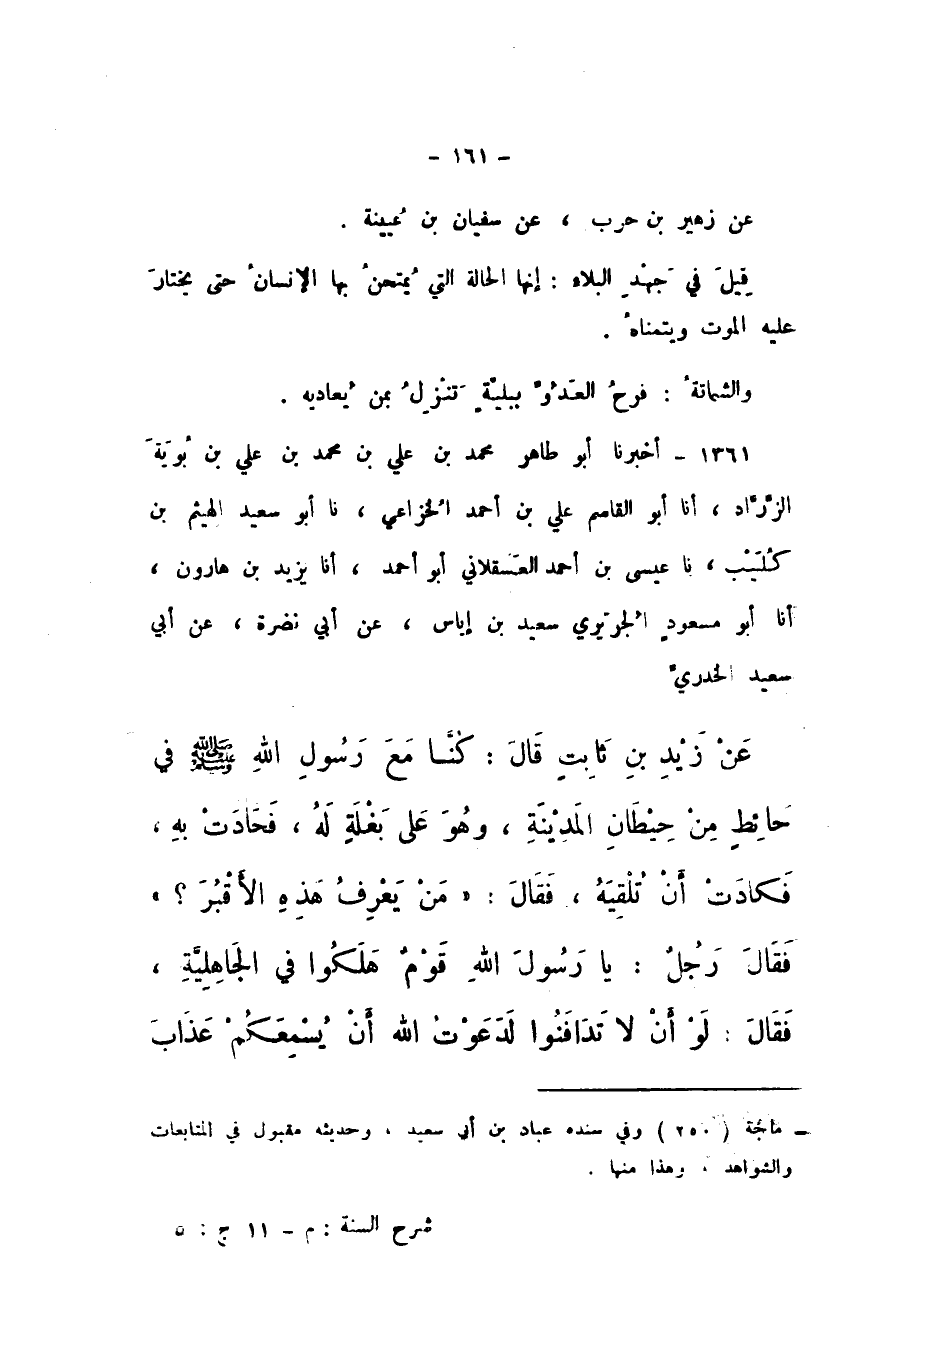 - ١٦١ -
عن زهير بن حرب ، عن سفيان بن عُيينة .
قِيلَ في جَهْدِ البلاء : إنها الحالة التي يُمتحنُ بها الإنسانُ حتى يختارَ
عليه الموت ويتمناهُ .
والشماتةُ : فرحُ العَدُوِّ ببليَّةٍ تَنْزِلُ بمن يُعاديه .
١٣٦١ - أخبرنا أبو طاهر محمد بن علي بن محمد بن علي بن بُويَةَ
الزَّرَّاد ، أنا أبو القاسم علي بن أحمد الخُزاعي ، نا أبو سعيد الهيثم بن
كُلَيْب ، نا عيسى بن أحمد العَسقلاني أبو أحمد ، أنا يزيد بن هارون ،
أنا أبو مسعودٍ الجُرَيري سعيد بن إياس ، عن أبي نضرة ، عن أبي
سعيد الخدريِّ
عَنْ زَيْدِ بنِ ثَابِتٍ قَالَ : كُنَّا مَعَ رَسُولِ اللهِ ﷺ في
حَائِطٍ مِنْ حِيْطَانِ المَدِيْنَةِ ، وهُوَ عَلى بَغْلَةٍ لَهُ ، فَحَادَتْ بهِ ،
فَكادَتْ أَنْ تُلْقِيَهُ ، فَقَالَ : « مَنْ يَعْرِفُ هَذِهِ الأَقْبُرَ ؟ »
فَقَالَ رَجُلٌ : يا رَسُولَ اللهِ قَوْمٌ هَلَكُوا في الجَاهِلِيَّةِ ،
فَقَالَ : لَوْ أَنْ لا تَدَافَنُوا لَدَعَوْتُ الله أَنْ يُسْمِعَكُمْ عَذَابَ
ـ ماجة ( ٢٥٠ ) وفي سنده عباد بن أبي سعيد ، وحديثه مقبول في المتابعات
والشواهد ، وهذا منها .
شرح السنة : م - ١١ ج : ٥